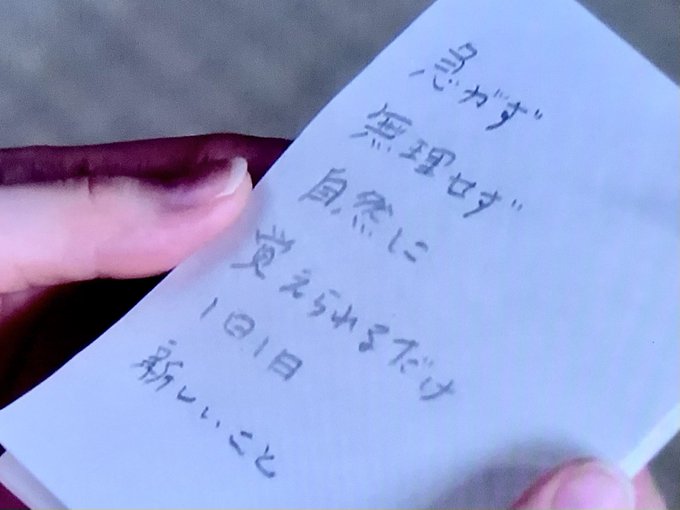 急がず
無理せず
自然に
覚えられるだけ
1日1日
新しいこと